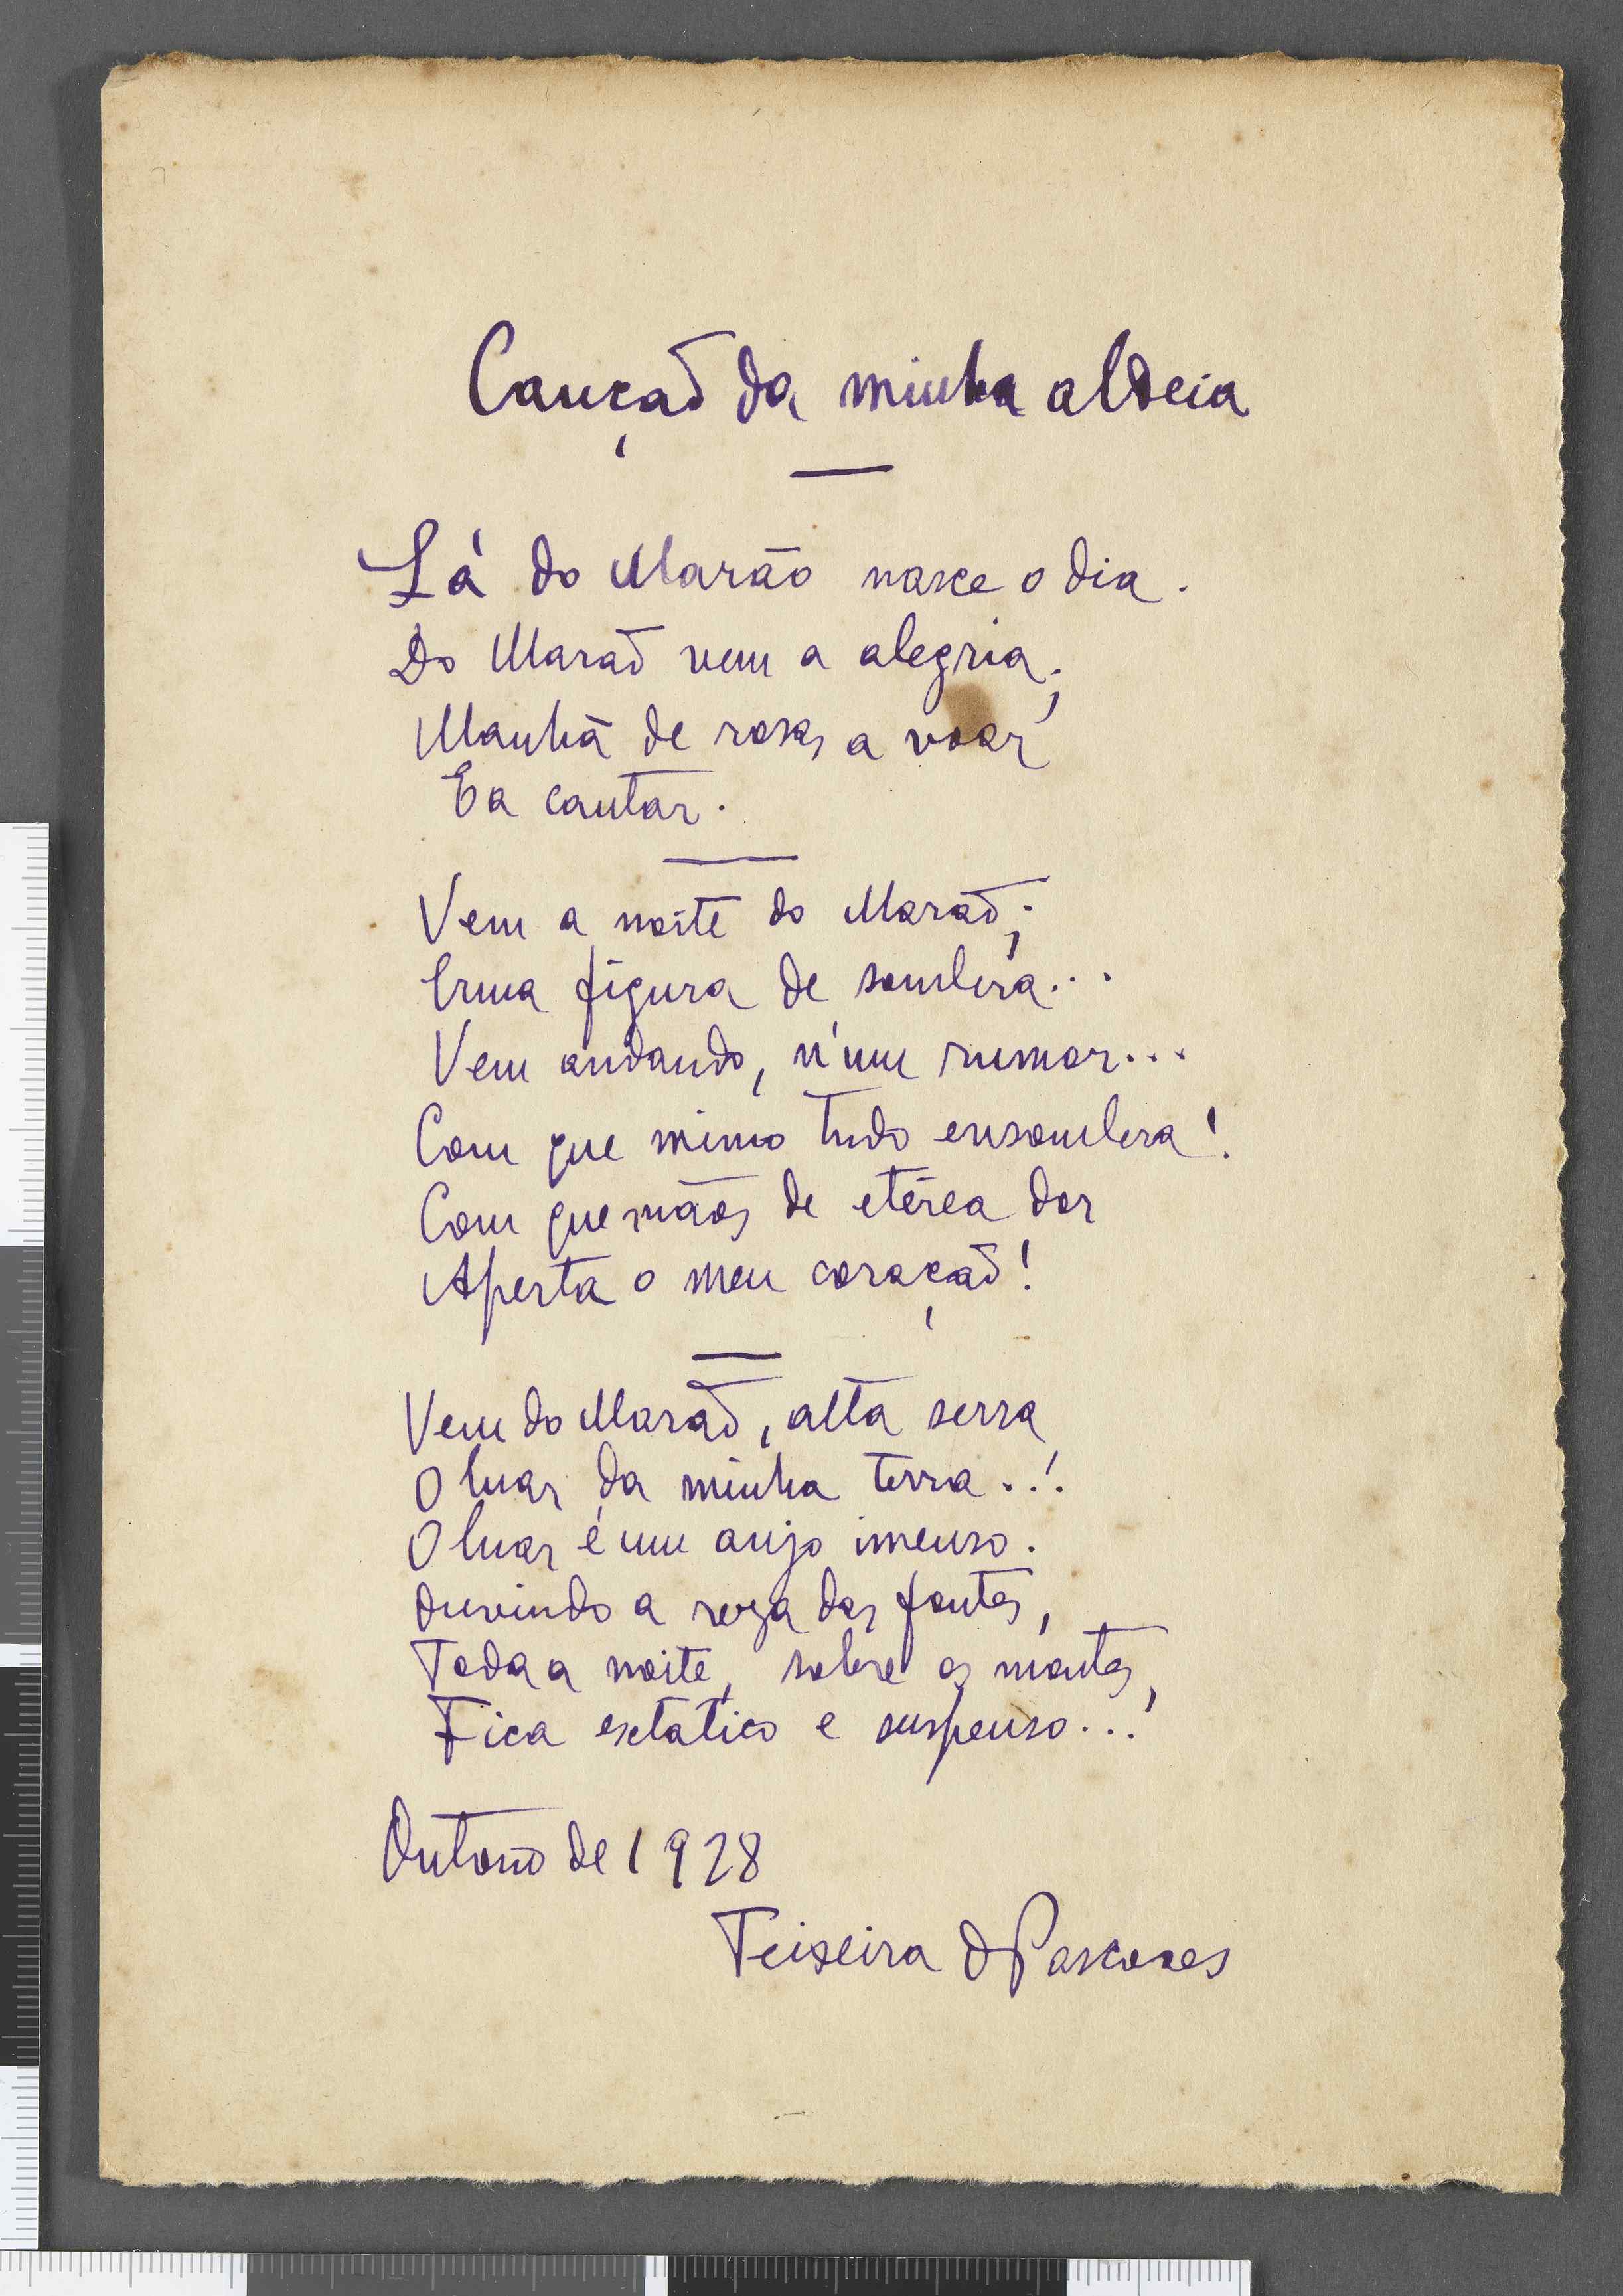 Canção da minha aldeia
Lá do Marão nasce o dia.
Do Marão vem a alegria;
Manhã de rosas a voar
E a cantar.
Vem a noite do Marão;
Uma figura de sombra...
Vem andando, n'um rumor...
Com que mimo tudo ensombra!
Com que mãos de etérea dor
Aperta o meu coração!
Vem do Marão, alta serra
O luar da minha terra..!
O luar é um anjo imenso.
Ouvindo a reza das fontes,
Toda a noite, sobre os montes,
Fica extatico e suspenso...!
Outono de 1928
Teixeira de Pascoaes